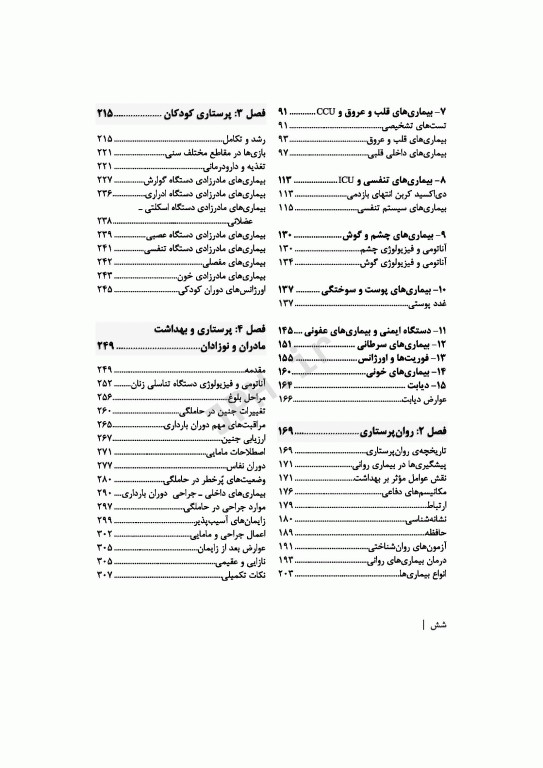 ۷- بیماری‌های قلب و عروق و CCU ............ ۹۱
تست‌های تشخیصی ............ ۹۱
بیماری‌های قلب و عروق ............ ۹۳
بیماری‌های داخلی قلبی ............ ۹۷
۸- بیماری‌های تنفسی و ICU ............ ۱۱۳
دی‌اکسید کربن انتهای بازدمی ............ ۱۱۳
بیماری‌های سیستم تنفسی ............ ۱۱۵
۹- بیماری‌های چشم و گوش ............ ۱۳۰
آناتومی و فیزیولوژی چشم ............ ۱۳۰
آناتومی و فیزیولوژی گوش ............ ۱۳۴
۱۰- بیماری‌های پوست و سوختگی ............ ۱۳۷
غدد پوستی ............ ۱۳۷
۱۱- دستگاه ایمنی و بیماری‌های عفونی .... ۱۴۵
۱۲- بیماری‌های سرطانی ............ ۱۵۱
۱۳- فوریت‌ها و اورژانس ............ ۱۵۵
۱۴- بیماری‌های خونی ............ ۱۶۰
۱۵- دیابت ............ ۱۶۴
عوارض دیابت ............ ۱۶۶
فصل ۲: روان‌پرستاری ............ ۱۶۹
تاریخچه‌ی روان‌پرستاری ............ ۱۶۹
پیشگیری‌ها در بیماری روانی ............ ۱۷۱
نقش عوامل مؤثر بر بهداشت ............ ۱۷۱
مکانیسم‌های دفاعی ............ ۱۷۶
ارتباط ............ ۱۷۹
نشانه‌شناسی ............ ۱۸۰
حافظه ............ ۱۸۹
آزمون‌های روان‌شناختی ............ ۱۹۱
درمان بیماری‌های روانی ............ ۱۹۳
انواع بیماری‌ها ............ ۲۰۳
فصل ۳: پرستاری کودکان ............ ۲۱۵
رشد و تکامل ............ ۲۱۵
بازی‌ها در مقاطع مختلف سنی ............ ۲۲۱
تغذیه و دارودرمانی ............ ۲۲۱
بیماری‌های مادرزادی دستگاه گوارش ............ ۲۲۷
بیماری‌های مادرزادی دستگاه ادراری ............ ۲۳۶
بیماری‌های مادرزادی دستگاه اسکلتی ـ
عضلانی ............ ۲۳۸
بیماری‌های مادرزادی دستگاه عصبی ............ ۲۳۹
بیماری‌های مادرزادی دستگاه تنفسی ............ ۲۴۱
بیماری‌های مفصلی ............ ۲۴۲
بیماری‌های مادرزادی خون ............ ۲۴۳
اورژانس‌های دوران کودکی ............ ۲۴۵
فصل ۴: پرستاری و بهداشت
مادران و نوزادان ............ ۲۴۹
مقدمه ............ ۲۴۹
آناتومی و فیزیولوژی دستگاه تناسلی زنان ............ ۲۵۲
مراحل بلوغ ............ ۲۵۶
تغییرات جنین در حاملگی ............ ۲۶۰
مراقبت‌های مهم دوران بارداری ............ ۲۶۵
ارزیابی جنین ............ ۲۶۷
اصطلاحات مامایی ............ ۲۷۱
دوران نفاس ............ ۲۷۷
وضعیت‌های پُرخطر در حاملگی ............ ۲۸۰
بیماری‌های داخلی ـ جراحی دوران بارداری .... ۲۹۰
موارد جراحی در حاملگی ............ ۲۹۷
زایمان‌های آسیب‌پذیر ............ ۲۹۹
اعمال جراحی و مامایی ............ ۳۰۲
عوارض بعد از زایمان ............ ۳۰۵
نازایی و عقیمی ............ ۳۰۵
نکات تکمیلی ............ ۳۰۷
شش |